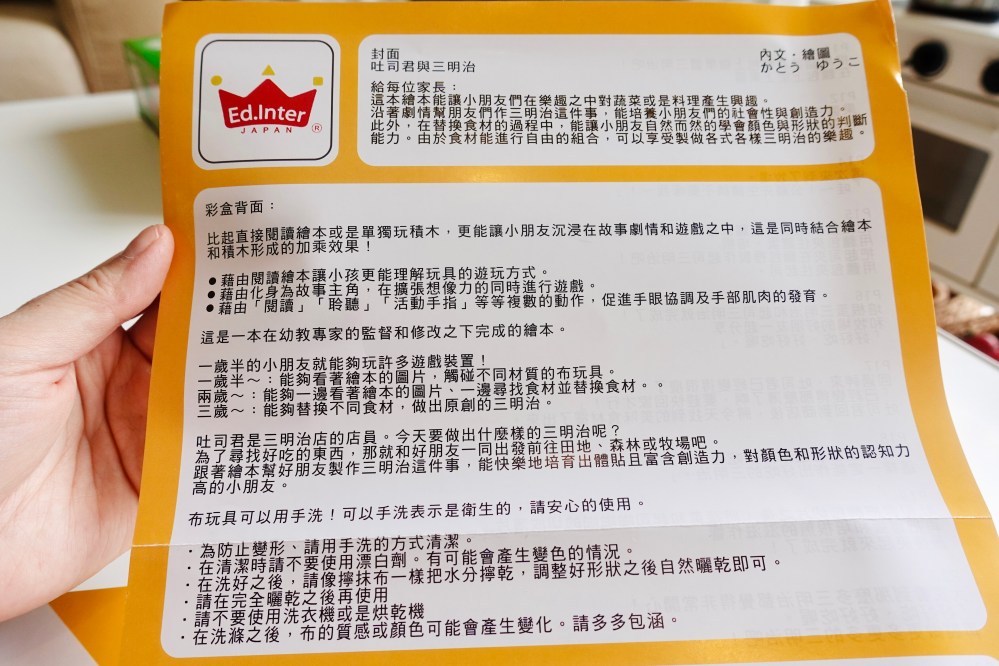 Ed.Inter
JAPAN
®
封面
吐司君與三明治
內文・繪圖
かとう ゆうこ
給每位家長：
這本繪本能讓小朋友們在樂趣之中對蔬菜或是料理產生興趣。
沿著劇情幫朋友們作三明治這件事，能培養小朋友們的社會性與創造力。
此外，在替換食材的過程中，能讓小朋友自然而然的學會顏色與形狀的判斷
能力。由於食材能進行自由的組合，可以享受製做各式各樣三明治的樂趣。
彩盒背面：
比起直接閱讀繪本或是單獨玩積木，更能讓小朋友沉浸在故事劇情和遊戲之中，這是同時結合繪本
和積木形成的加乘效果！
●藉由閱讀繪本讓小孩更能理解玩具的遊玩方式。
●藉由化身為故事主角，在擴張想像力的同時進行遊戲。
●藉由「閱讀」「聆聽」「活動手指」等等複數的動作，促進手眼協調及手部肌肉的發育。
這是一本在幼教專家的監督和修改之下完成的繪本。
一歲半的小朋友就能夠玩許多遊戲裝置！
一歲半～：能夠看著繪本的圖片，觸碰不同材質的布玩具。
兩歲～：能夠一邊看著繪本的圖片、一邊尋找食材並替換食材。。
三歲～：能夠替換不同食材，做出原創的三明治。
吐司君是三明治店的店員。今天要做出什麼樣的三明治呢？
為了尋找好吃的東西，那就和好朋友一同出發前往田地、森林或牧場吧。
跟著繪本幫好朋友製作三明治這件事，能快樂地培育出體貼且富含創造力，對顏色和形狀的認知力
高的小朋友。
布玩具可以用手洗！可以手洗表示是衛生的，請安心的使用。
・為防止變形、請用手洗的方式清潔。
・在清潔時請不要使用漂白劑。有可能會產生變色的情況。
・在洗好之後，請像擰抹布一樣把水分擰乾，調整好形狀之後自然曬乾即可。
・請在完全曬乾之後再使用
・請不要使用洗衣機或是烘乾機
・在洗滌之後，布的質感或顏色可能會產生變化。請多多包涵。